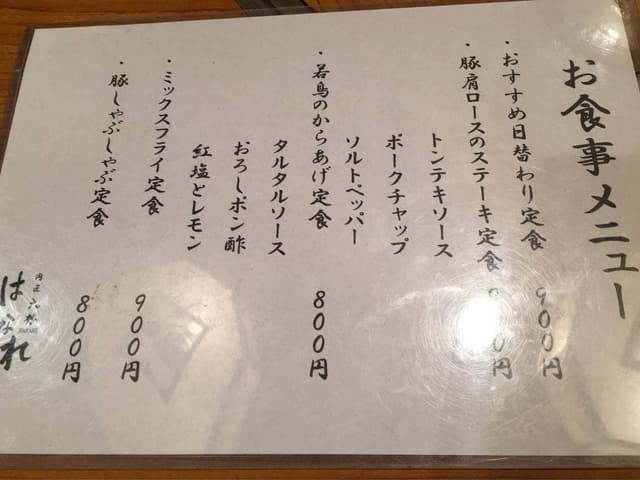 お食事メニュー
・おすすめ日替わり定食 900円
・豚肩ロースのステーキ定食 00円
トンテキソース
ポークチャップ
ソルトペッパー
・若鳥のからあげ定食 800円
タルタルソース
おろしポン酢
紅塩とレモン
・ミックスフライ定食 900円
・豚しゃぶしゃぶ定食 800円
はなれ